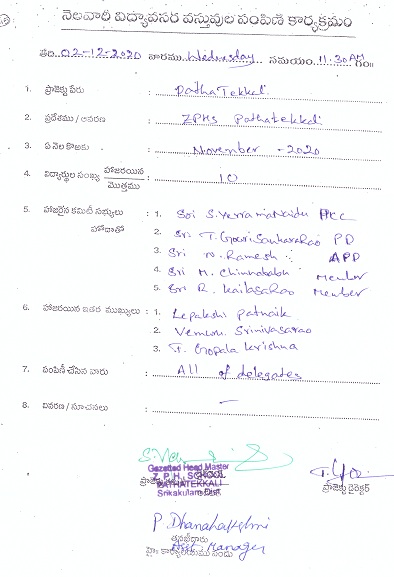 నెలవారీ విద్యావసర వస్తువుల పంపిణీ కార్యక్రమం
తేది. 02-12-2020 వారము Wednesday సమయం. 11.30 AM గం॥
1. ప్రాజెక్టు పేరు : PathaTekkali
2. ప్రదేశము / ఆవరణ : ZPHS Pathatekkali
3. ఏ నెల కొఱకు : November - 2020
4. విద్యార్థుల సంఖ్య హాజరయిన / మొత్తము : 10
5. హాజరైన కమిటీ సభ్యులు : 1. Sri S. Verramanaidu
హోదాతో 2. Sri T. GowriSankaraRao PD
3. Sri N. Ramesh APD
4. Sri M. Chinnababu Member
5. Sri R. KailasaRao Member
6. హాజరయిన ఇతర ముఖ్యులు : 1. Lepakshi Patnaik
2. Vemuru Srinivasarao
3. T. Gopala Krishna
7. పంపిణీ చేసిన వారు : All of delegates
8. వివరణ / సూచనలు : -
Gazetted Head Master
Z. P. H. SCHOOL
PATHATEKKALI
Srikakulam Dist.
ప్రాజెక్టు డైరెక్టర్
P. Dhanalakshmi
Manager